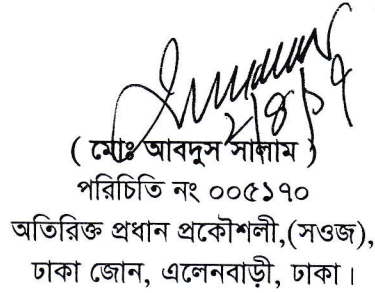 ২/৪/১৭
( মোঃ আবদুস সালাম )
পরিচিতি নং ০০৫১৭০
অতিরিক্ত প্রধান প্রকৌশলী,(সওজ),
ঢাকা জোন, এলেনবাড়ী, ঢাকা।